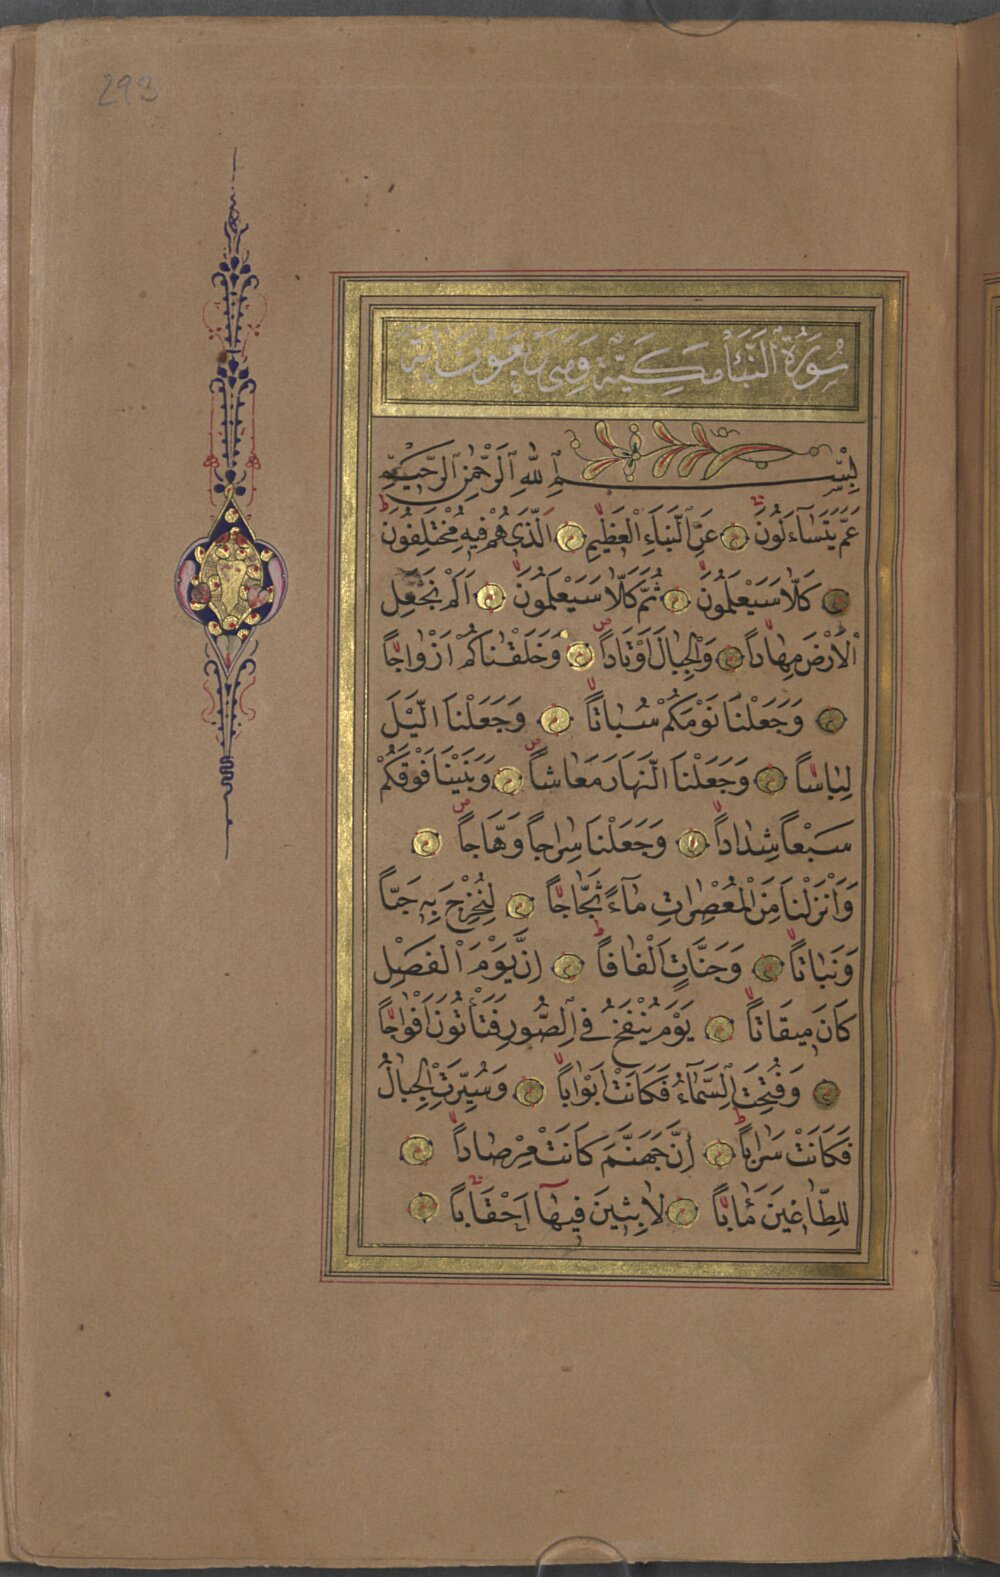 293
سُورَةُ النَّبَأ مَكِّيَّةٌ وَهِىَ اَرْبَعُونَ اٰيَة
بِسْمِ اللّٰهِ الرَّحْمٰنِ الرَّحِيمِ
عَمَّ يَتَسَآءَلُونَ عَنِ النَّبَاءِ الْعَظِيمِ اَلَّذِى هُمْ فِيهِ مُخْتَلِفُونَ
كَلَّا سَيَعْلَمُونَ ثُمَّ كَلَّا سَيَعْلَمُونَ اَلَمْ نَجْعَلِ
الْاَرْضَ مِهَاداً وَالْجِبَالَ اَوْتَاداً وَخَلَقْنَاكُمْ اَزْوَاجاً
وَجَعَلْنَا نَوْمَكُمْ سُبَاتاً وَجَعَلْنَا الَّيْلَ
لِبَاساً وَجَعَلْنَا النَّهَارَ مَعَاشاً وَبَنَيْنَا فَوْقَكُمْ
سَبْعاً شِدَاداً وَجَعَلْنَا سِرَاجاً وَهَّاجاً
وَاَنْزَلْنَا مِنَ الْمُعْصِرَاتِ مَآءً ثَجَّاجاً لِنُخْرِجَ بِهِ حَبّاً
وَنَبَاتاً وَجَنَّاتٍ اَلْفَافاً اِنَّ يَوْمَ الْفَصْلِ
كَانَ مِيقَاتاً يَوْمَ يُنْفَخُ فِى الصُّورِ فَتَأْتُونَ اَفْوَاجاً
وَفُتِحَتِ السَّمَآءُ فَكَانَتْ اَبْوَاباً وَسُيِّرَتِ الْجِبَالُ
فَكَانَتْ سَرَاباً اِنَّ جَهَنَّمَ كَانَتْ مِرْصَاداً
لِلطَّاغِينَ مَاٰباً لَابِثِينَ فِيهَا اَحْقَاباً